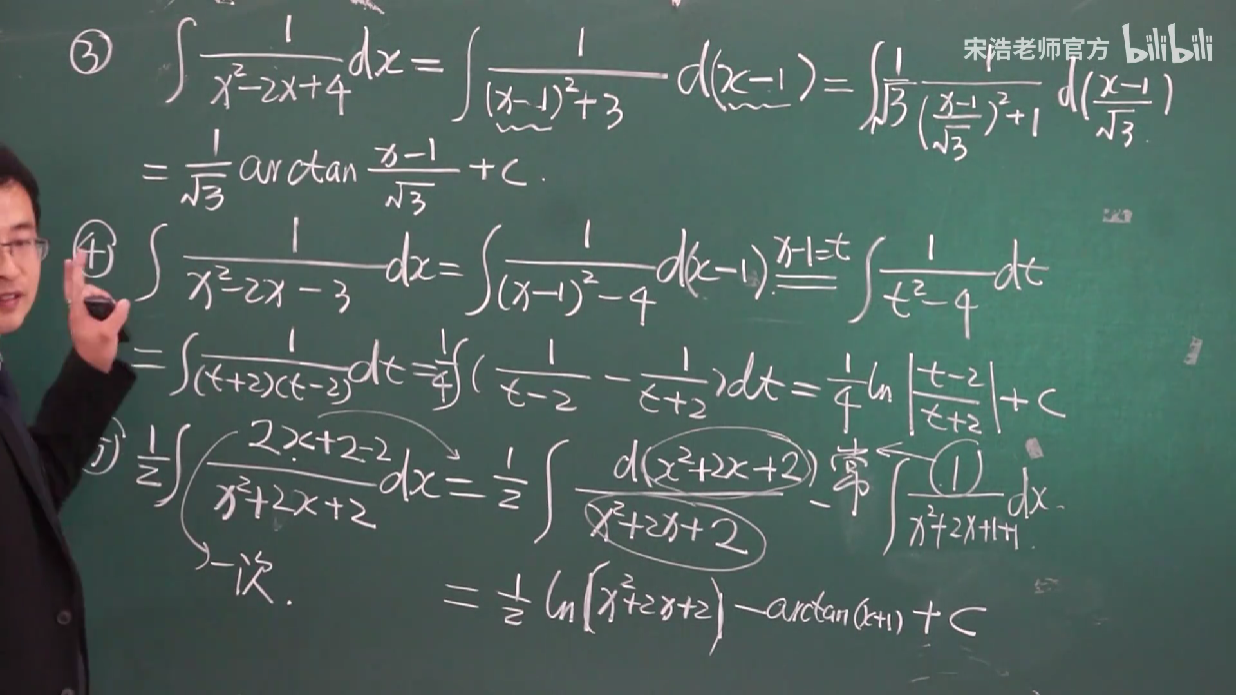 宋浩老师官方 bilibili
③ ∫ 1/(x²-2x+4) dx = ∫ 1/((x-1)²+3) d(x-1) = ∫ 1/√3 1/(((x-1)/√3)²+1) d((x-1)/√3)
= 1/√3 arctan (x-1)/√3 + C.
④ ∫ 1/(x²-2x-3) dx = ∫ 1/((x-1)²-4) d(x-1) x-1=t ∫ 1/(t²-4) dt
= ∫ 1/((t+2)(t-2)) dt = 1/4 ∫ ( 1/(t-2) - 1/(t+2) ) dt = 1/4 ln |(t-2)/(t+2)| + C
1/2 ∫ (2x+2-2)/(x²+2x+2) dx = 1/2 ∫ d(x²+2x+2)/(x²+2x+2) - 常 ∫ 1/(x²+2x+1+1) dx.
一次.
= 1/2 ln(x²+2x+2) - arctan(x+1) + C